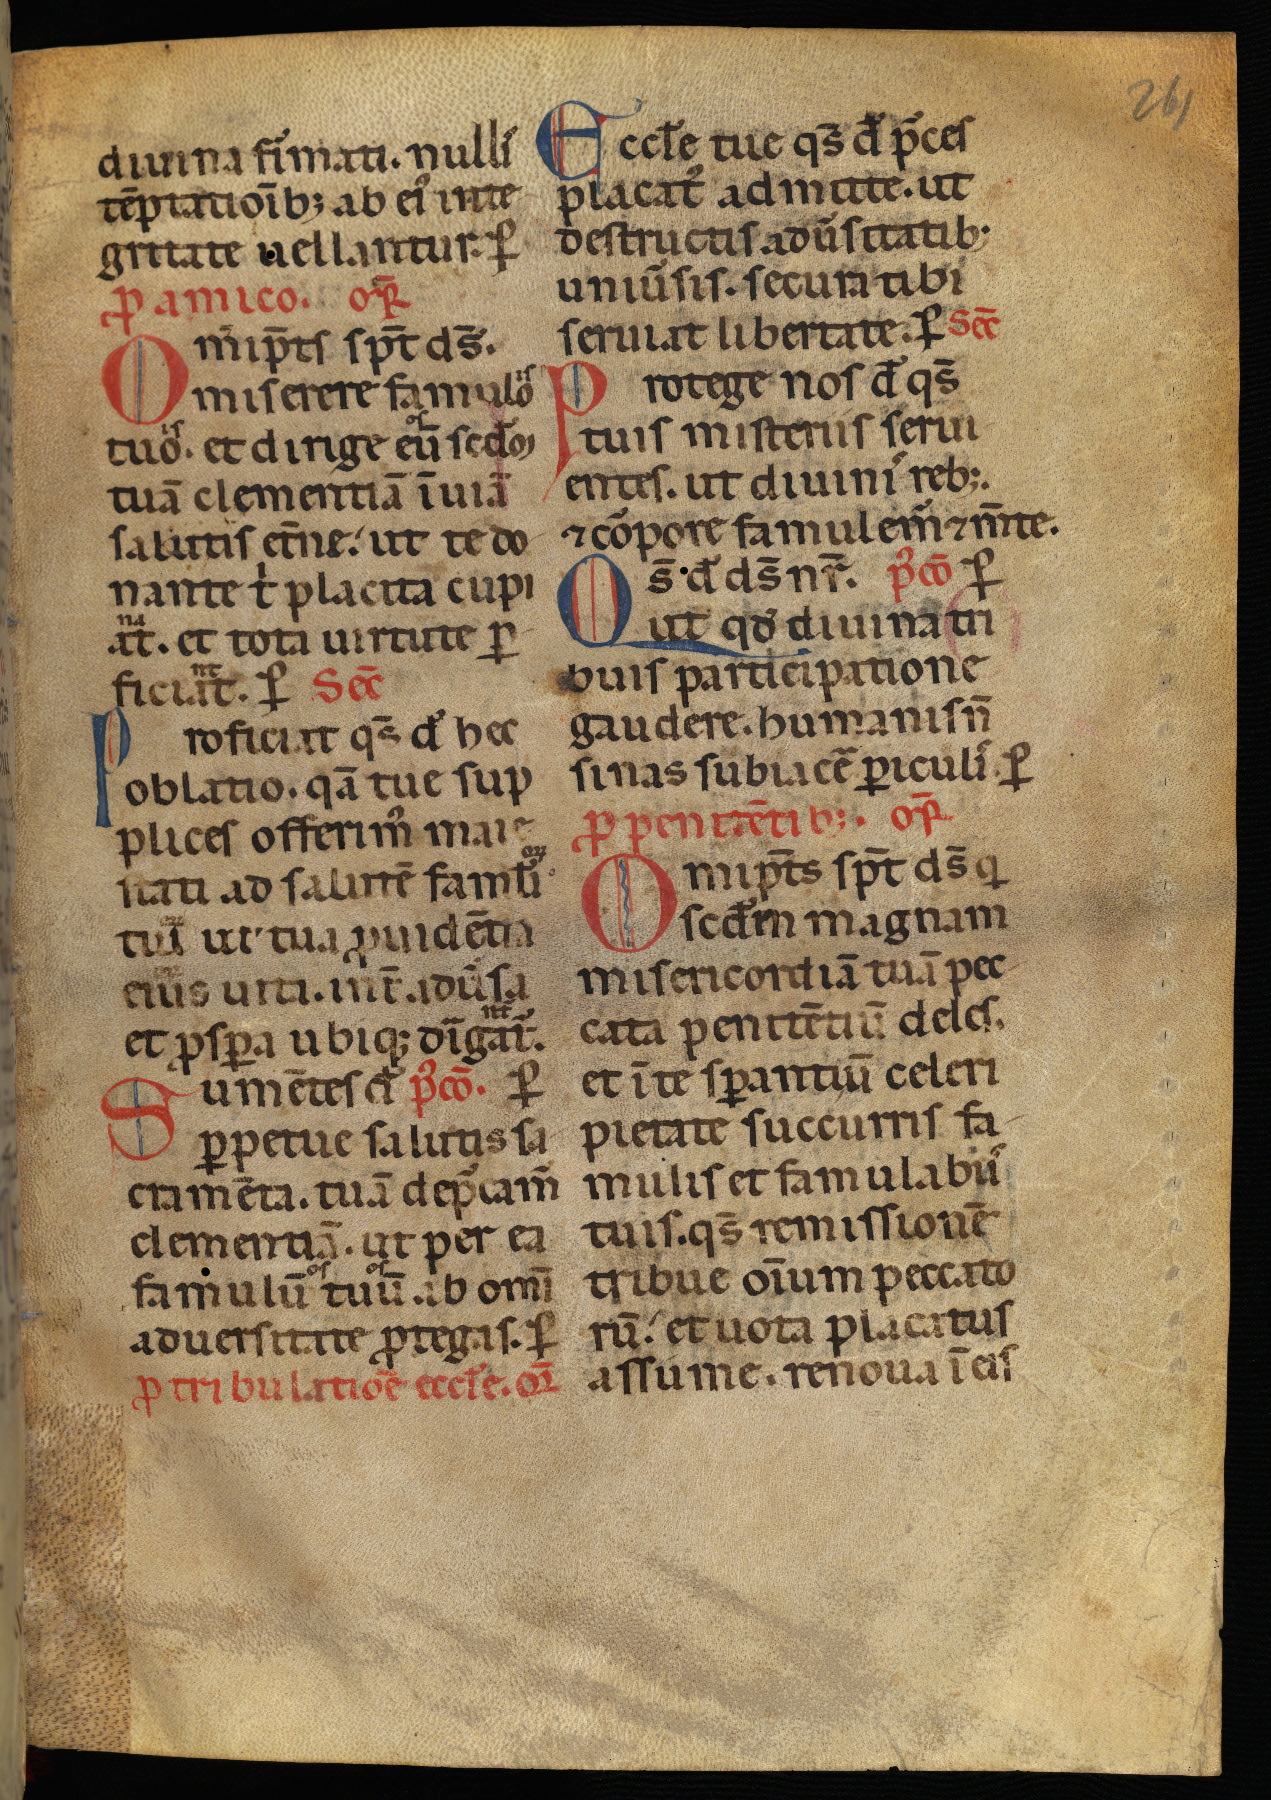 261
diuina fi᷑mati. nulli᷑
tēptatioīb; ab ei᷑ inte
gritate uellantur. ꝑ
ꝓ amico. oꝛ̄
Omīp̄ts sp̄t ds̄.
miserere famulo᷑ is
tuo. is et dirige eū os scd̄ꝫ
tuā clementiā ī uiā
salutis et̄ne. ut te do
nante t̄ placita cupi
at. na et tota uirtute ꝑ
ficiat. nt ꝑ Sec̄
Proficiat qs̄ d᷑ hec
oblatio. quā tue sup
plices offerim᷑ maie
stati ad salutē famli᷑ oꝝ
tui ut tua ꝓuidētia
eius uiti. int̄ adūsa
et ꝓspꝑa ubiqꝫ di᷑gat᷑. nt
Sumētes d᷑ p᷑cō. ꝑ
ꝑpetue salutis sa
cramēta. tuā dep᷑cam᷑
clementiā. ut per ea
famulū os tuū os ab omī
aduersitate ꝓtegas. ꝑ
ꝓ tribulatioē eccl᷑e. oꝛ̄
Eccl᷑e tue qs̄ d᷑ p᷑ces
placat᷑ admitte. ut
destructis adūsitatib᷑
uniūsis. secura tibi
seruiat libertate. ꝑ Sec̄
Protege nos d᷑ qs̄
tuis misteriis serui
entes. ut diuini᷑ reb;.
⁊ cōpore famulem᷑ ⁊ m̄te.
Qs̄ d᷑ ds̄ nr̄. p᷑cō ꝑ
ut qd᷑ diuina tri
buis participatione
gaudere. humanis n̄
sinas subiacē ꝑiculi᷑. ꝑ
ꝓ penitētib;. oꝛ̄
Omīp̄ts sp̄t ds̄ q
scd᷑m magnam
misericordiā tuā pec
cata penitētiū deles.
et ī te sꝑantiū celeri
pietate succurris fa
mulis et famulabu᷑
tuis. qs̄ remissionē
tribue oīum peccato
rū. et uota placatus
assume. renoua ī eis